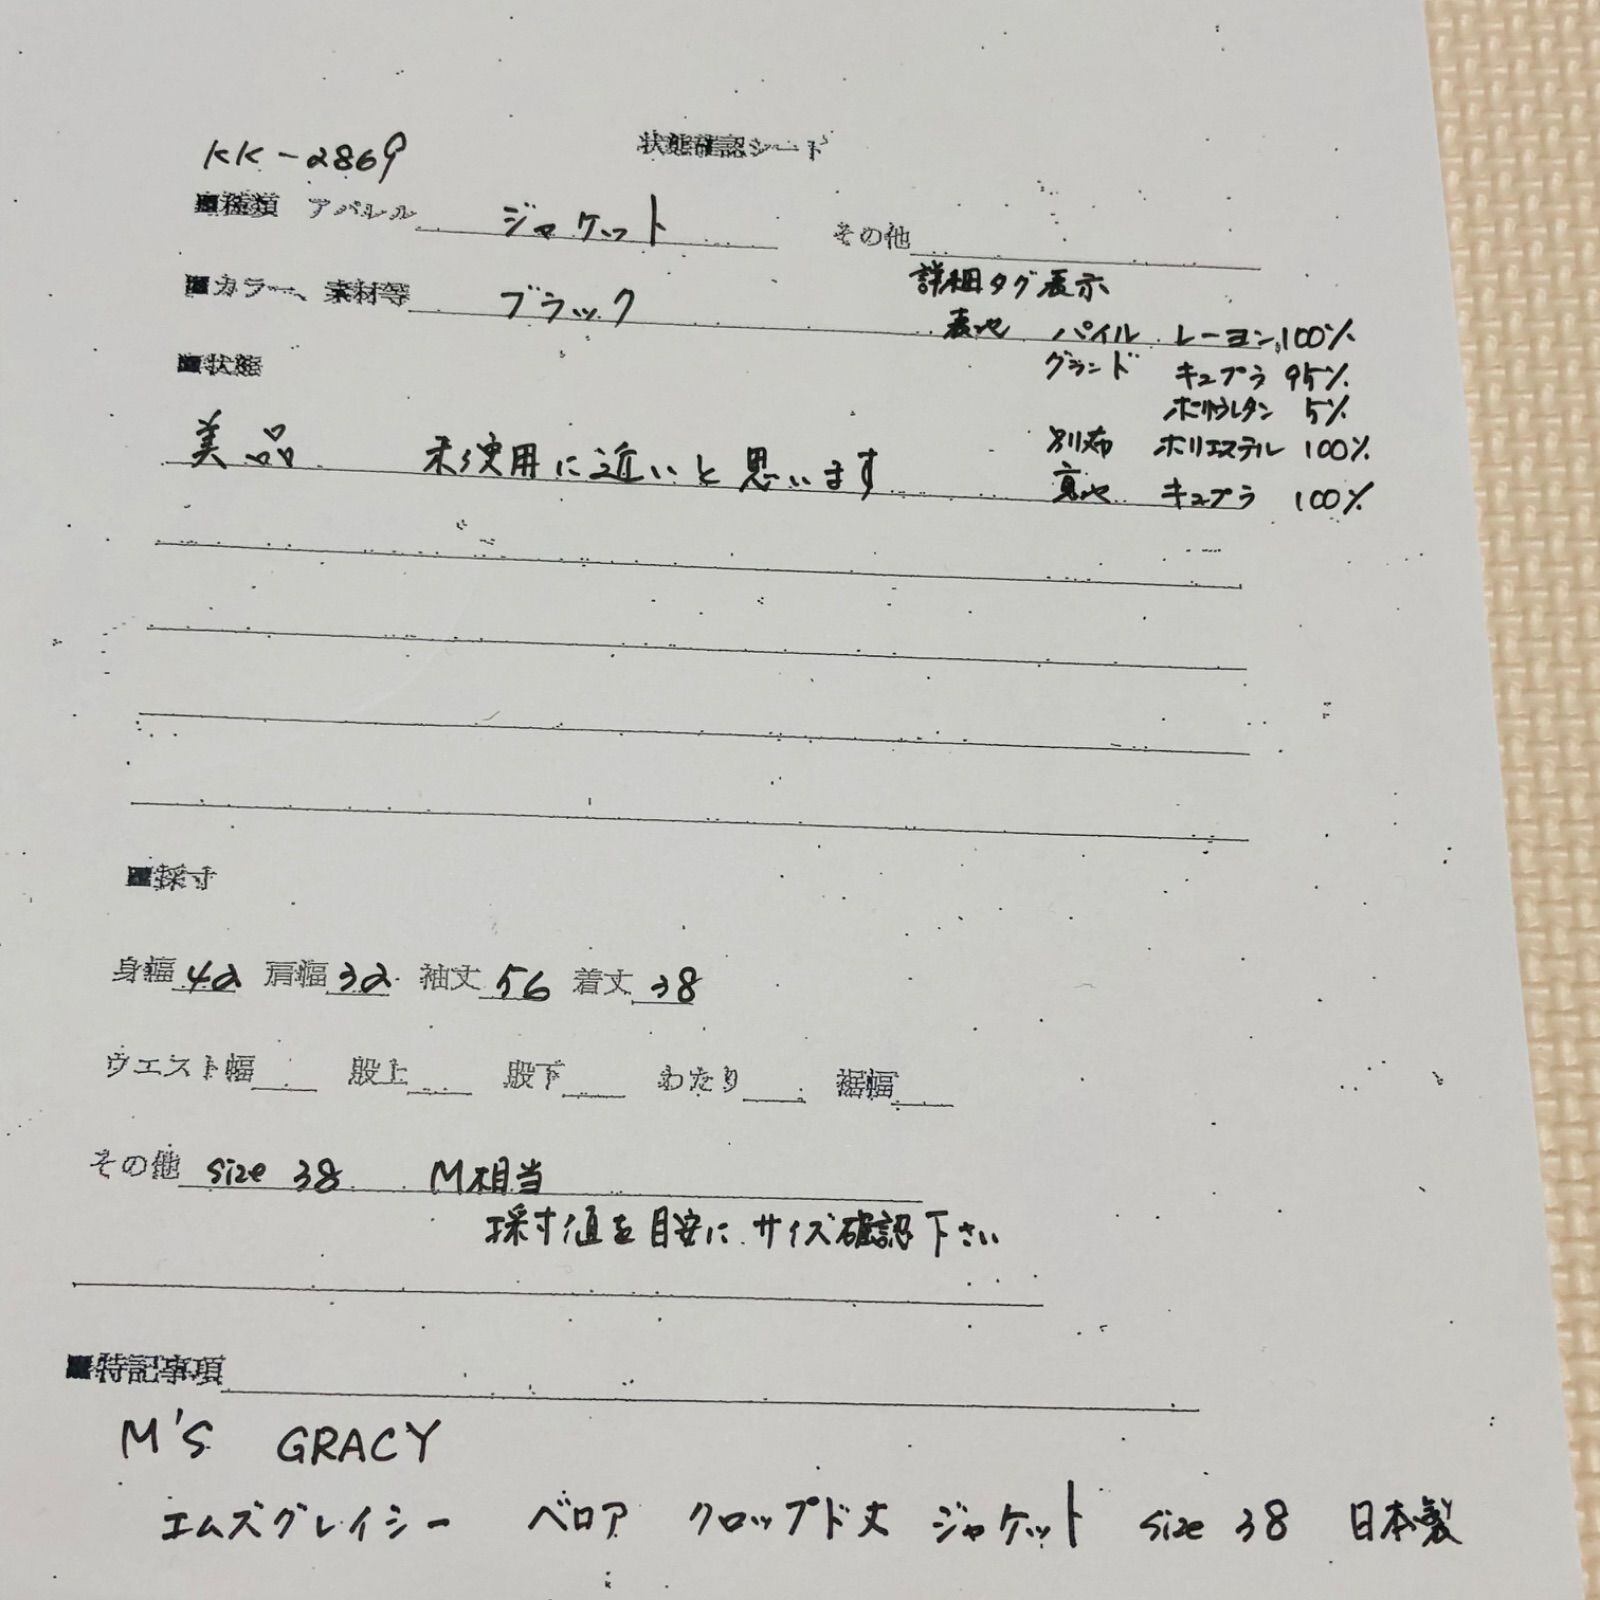 状態確認シート
KK-2869
■種類 アパレル ジャケット その他
詳細タグ表示
■カラー、素材等 ブラック
表地 パイル レーヨン 100%
グランド キュプラ 95%
ポリウレタン 5%
別布 ポリエステル 100%
裏地 キュプラ 100%
■状態
美品 未使用に近いと思います
■採寸
身幅 42 肩幅 32 袖丈 56 着丈 38
ウエスト幅 股上 股下 わたり 裾幅
その他 size 38 M相当
採寸値を目安に サイズ確認下さい
■特記事項
M'S GRACY
エムズグレイシー ベロア クロップド丈 ジャケット size 38 日本製